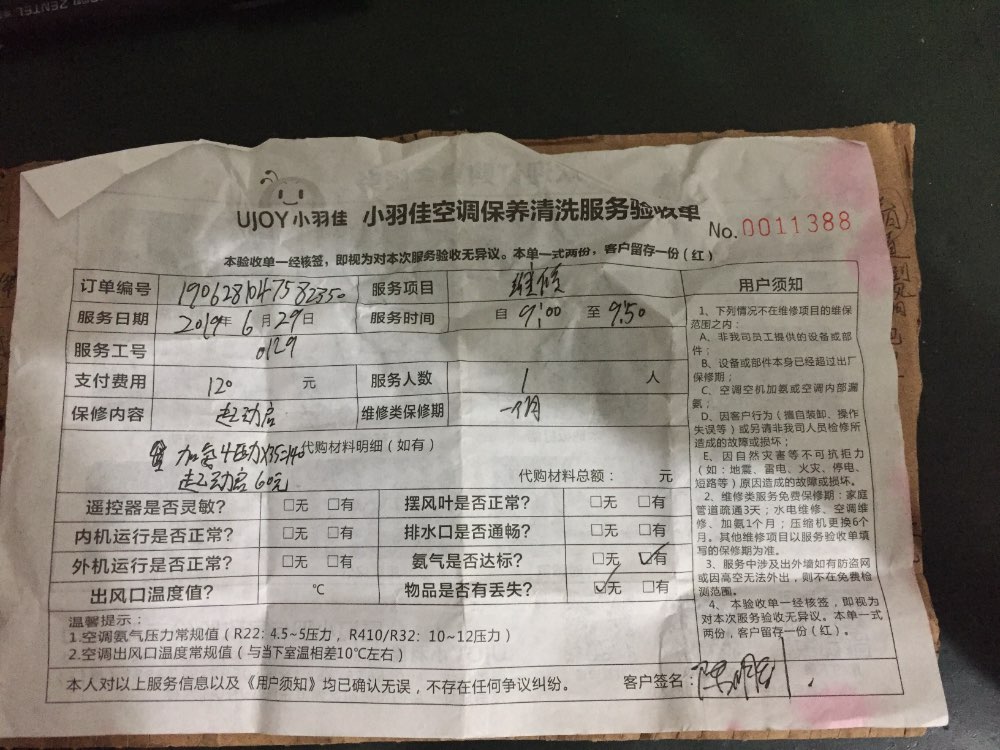 UJOY小羽佳 小羽佳空调保养清洗服务验收单
No.0011388
本验收单一经核签，即视为对本次服务验收无异议。本单一式两份，客户留存一份（红）
订单编号 1906281047582350 服务项目 维修
服务日期 2019年 6月 29日 服务时间 自 9:00 至 9:50
服务工号 0129
支付费用 120 元 服务人数 1 人
保修内容 起动启 维修类保修期 一个月
代购材料明细（如有）
加氨4压力X35=140
起动启 60元
代购材料总额： 元
遥控器是否灵敏？ □无 □有 摆风叶是否正常？ □无 □有
内机运行是否正常？ □无 □有 排水口是否通畅？ □无 □有
外机运行是否正常？ □无 □有 氨气是否达标？ □无 ☑有
出风口温度值？ ℃ 物品是否有丢失？ ☑无 □有
温馨提示：
1.空调氨气压力常规值（R22: 4.5~5压力，R410/R32: 10~12压力）
2.空调出风口温度常规值（与当下室温相差10℃左右）
本人对以上服务信息以及《用户须知》均已确认无误，不存在任何争议纠纷。 客户签名：
用户须知
1、下列情况不在维修项目的维保
范围之内：
A、非我司员工提供的设备或部
件；
B、设备或部件本身已经超过出厂
保修期；
C、空调空机加氨或空调内部漏
氨；
D、因客户行为（擅自装卸、操作
失误等）或另请非我司人员检修所
造成的故障或损坏；
E、因自然灾害等不可抗拒力
（如：地震、雷电、火灾、停电、
短路等）原因造成的故障或损坏。
2、维修类服务免费保修期：家庭
管道疏通3天；水电维修、空调维
修、加氨1个月；压缩机更换6个
月。其他维修项目以服务验收单填
写的保修期为准。
3、服务中涉及出外墙如有防盗网
或因高空无法外出，则不在免费检
测范围。
4、本验收单一经核签，即视为
对本次服务验收无异议。本单一式
两份，客户留存一份（红）。